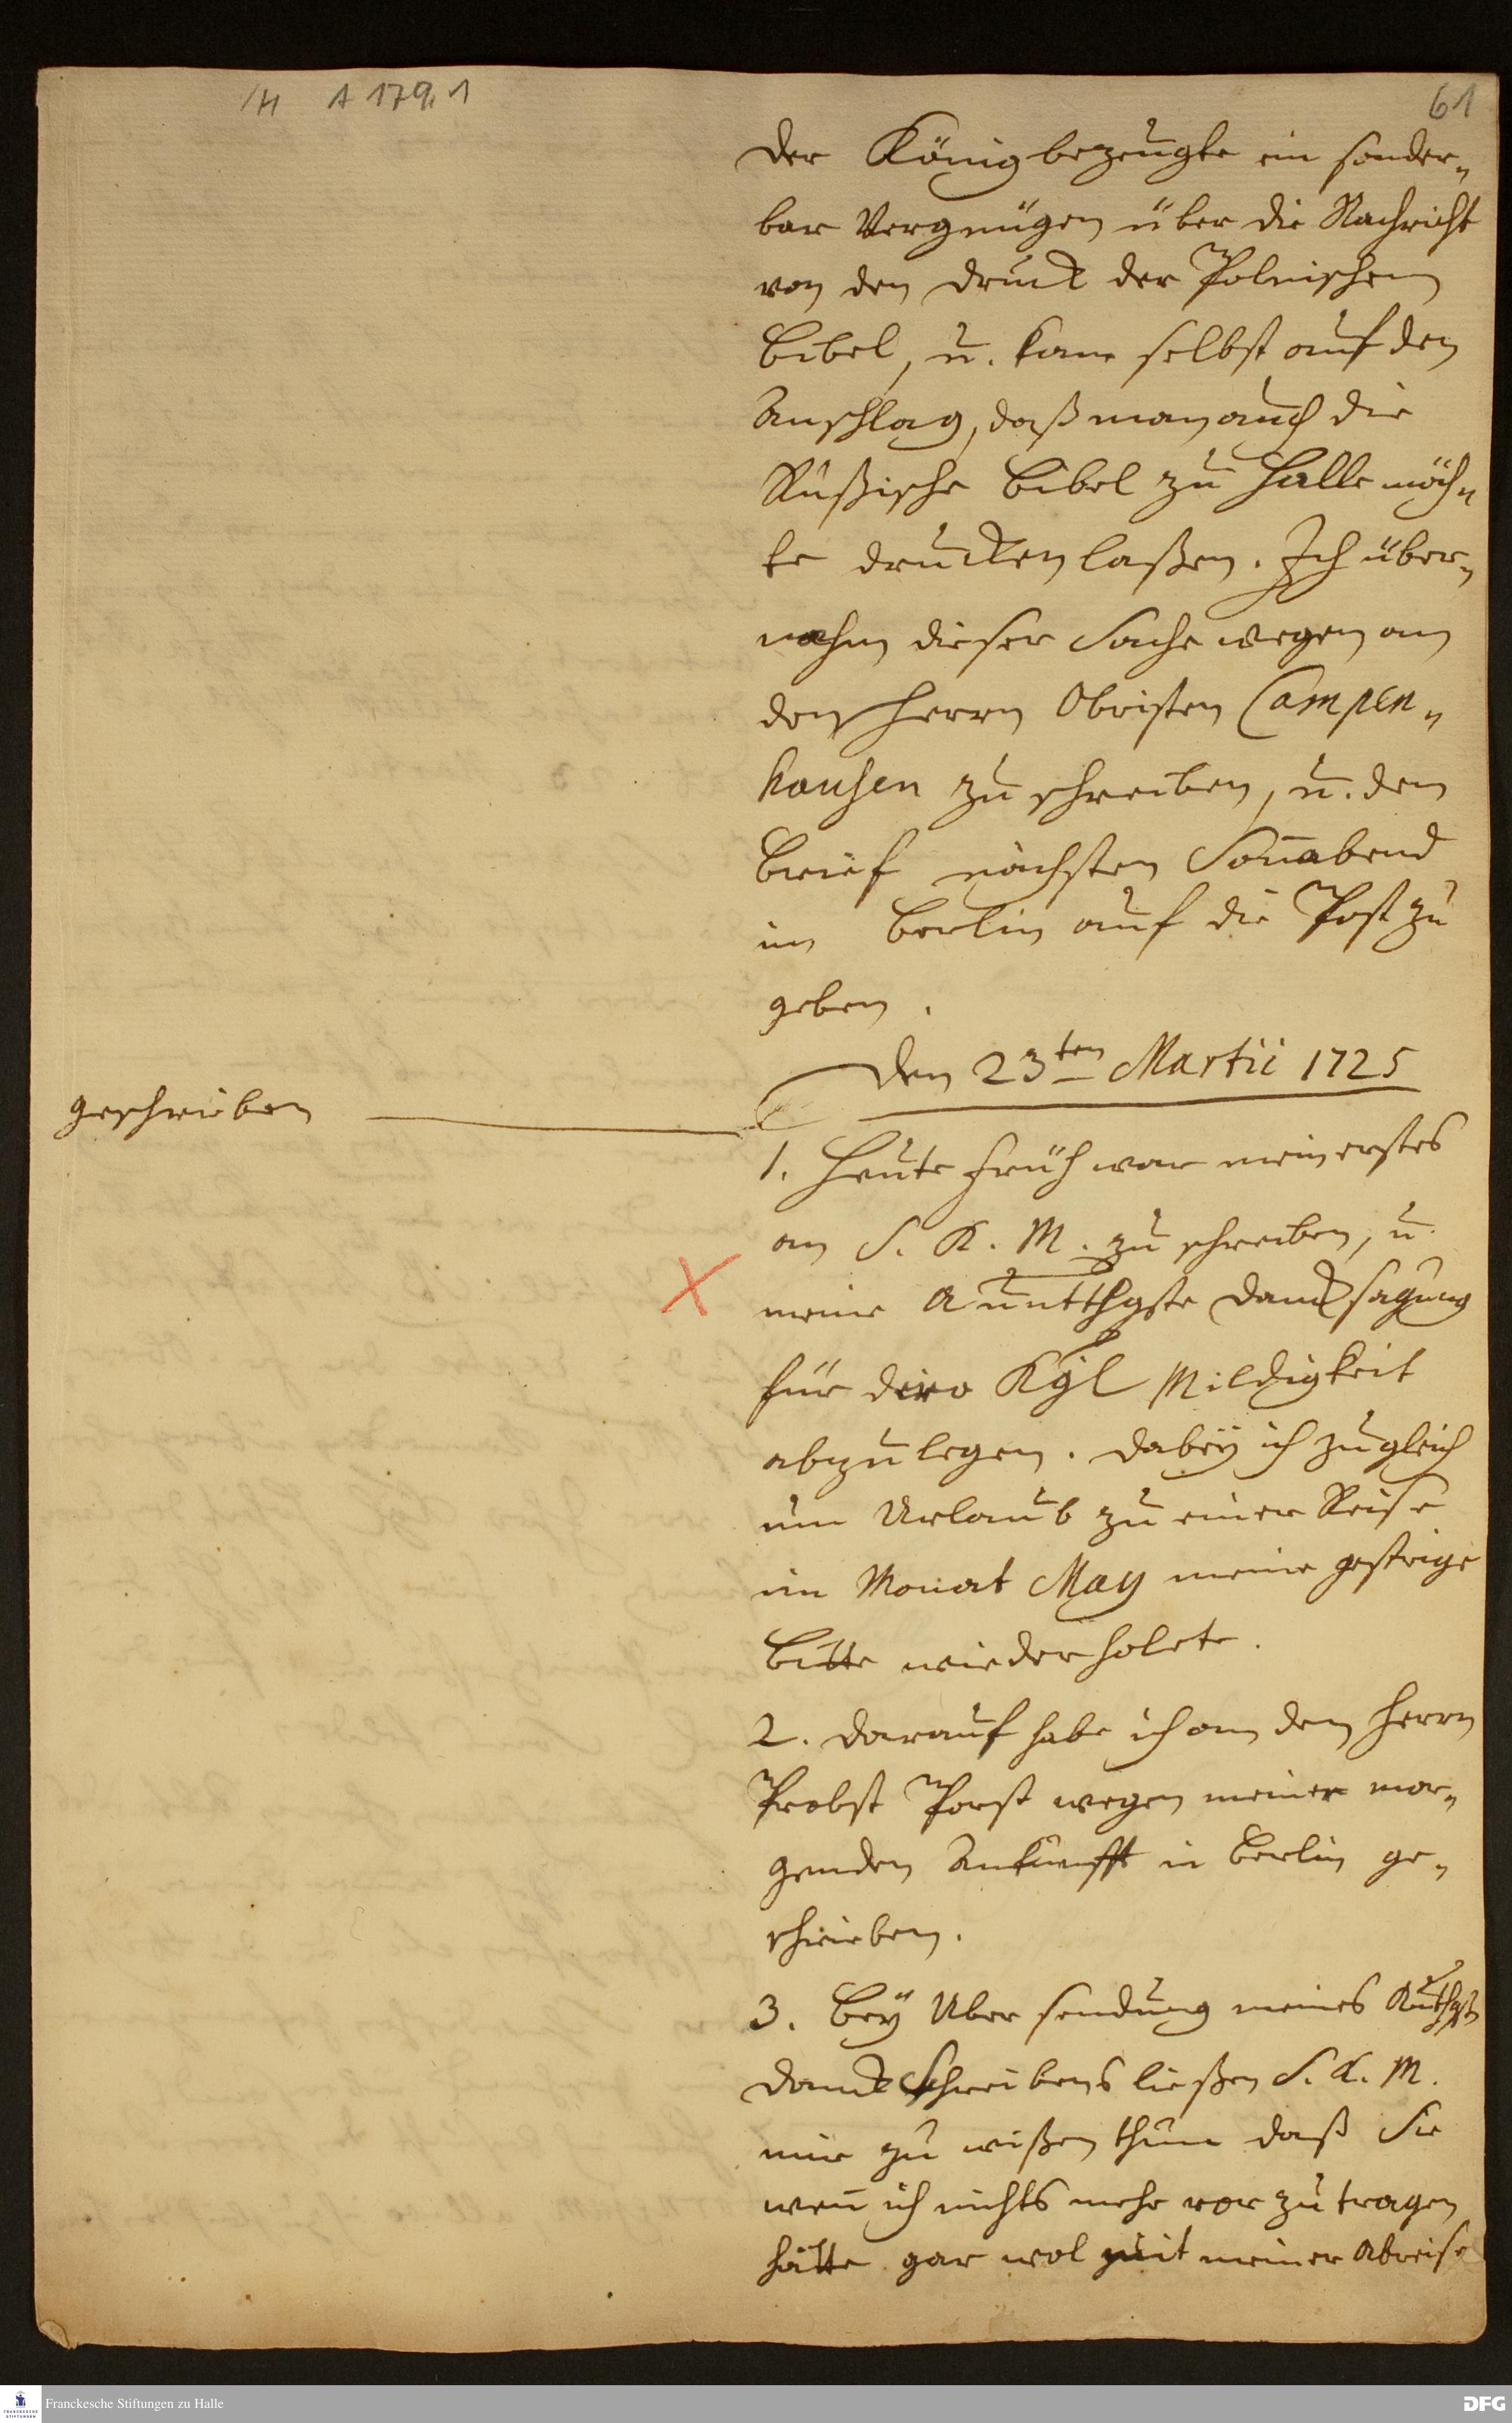 /H A 179,1
61
Der König bezeugte ein sonder„
bar Vergnügen über die Nachricht
von den Druck der Polnischen
Bibel, u. kam selbst auf den
Anschlag, daß man auch die
Rußische Bibel zu Halle möch„
te drucken laßen. Ich über„
nahm dieser Sache wegen an
den Herrn Obristen Campen„
hausen zu schreiben, u. den
Brief nächsten Soñabend
in Berlin auf die Post zu
geben.
Den 23ten Martii 1725
geschrieben
1. Heute früh war mein erstes
an S. K. M. zu schreiben, u.
meine Auntthgste Dancksagung
für dero Kgl Mildigkeit
abzulegen. Dabey ich zugleich
um Urlaub zu einer Reise
im Monat May meine gestrige
Bitte wiederholete.
2. Darauf habe ich an den Herrn
Probst Porst wegen meiner mor„
genden Ankunfft in Berlin ge„
schrieben.
3. Bey Ubersendung meines
Danckschreibens ließen S. K. M.
mir zu wißen thun daß Sie
weñ ich nichts mehr vor zu tragen
hätte gar wol mit meiner Abreise
Franckesche Stiftungen zu Halle
DFG